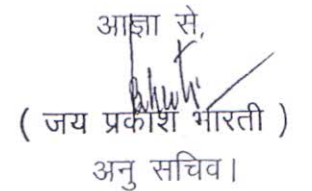 आज्ञा से,
( जय प्रकाश भारती )
अनु सचिव।